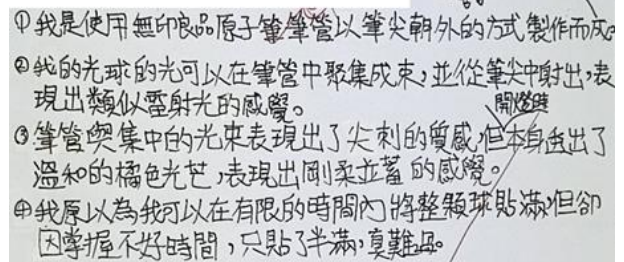 ①我是使用無印良品原子筆筆管以筆尖朝外的方式製作而成。
②我的光球的光可以在筆管中聚集成束,並從筆尖中射出,表
現出類似雷射光的感覺。
開燈時
③筆管與集中的光束表現出了尖刺的質感,但本身透出了
溫和的橘色光芒,表現出剛柔並蓄的感覺。
④我原以為我可以在有限的時間內將整顆球貼滿,但卻
因掌握不好時間,只貼了半滿,真難過。